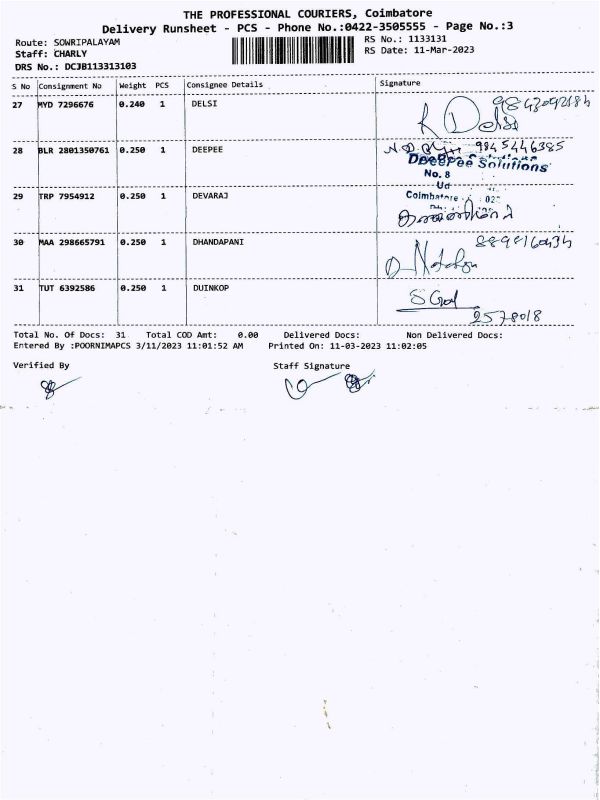 THE PROFESSIONAL COURIERS, Coimbatore
Delivery Runsheet - PCS - Phone No.:0422-3505555 - Page No.:3
Route: SOWRIPALAYAM
Staff: CHARLY
DRS No.: DCJB113313103
RS No.: 1133131
RS Date: 11-Mar-2023
S No Consignment No Weight PCS Consignee Details Signature
27 MYD 7296676 0.240 1 DELSI
28 BLR 2801350761 0.250 1 DEEPEE 9845446385
DeePee Solutions
No. 8
Ud
29 TRP 7954912 0.250 1 DEVARAJ Coimbatore
30 MAA 298665791 0.250 1 DHANDAPANI
31 TUT 6392586 0.250 1 DUINKOP
2578018
Total No. Of Docs: 31 Total COD Amt: 0.00 Delivered Docs: Non Delivered Docs:
Entered By :POORNIMAPCS 3/11/2023 11:01:52 AM Printed On: 11-03-2023 11:02:05
Verified By Staff Signature